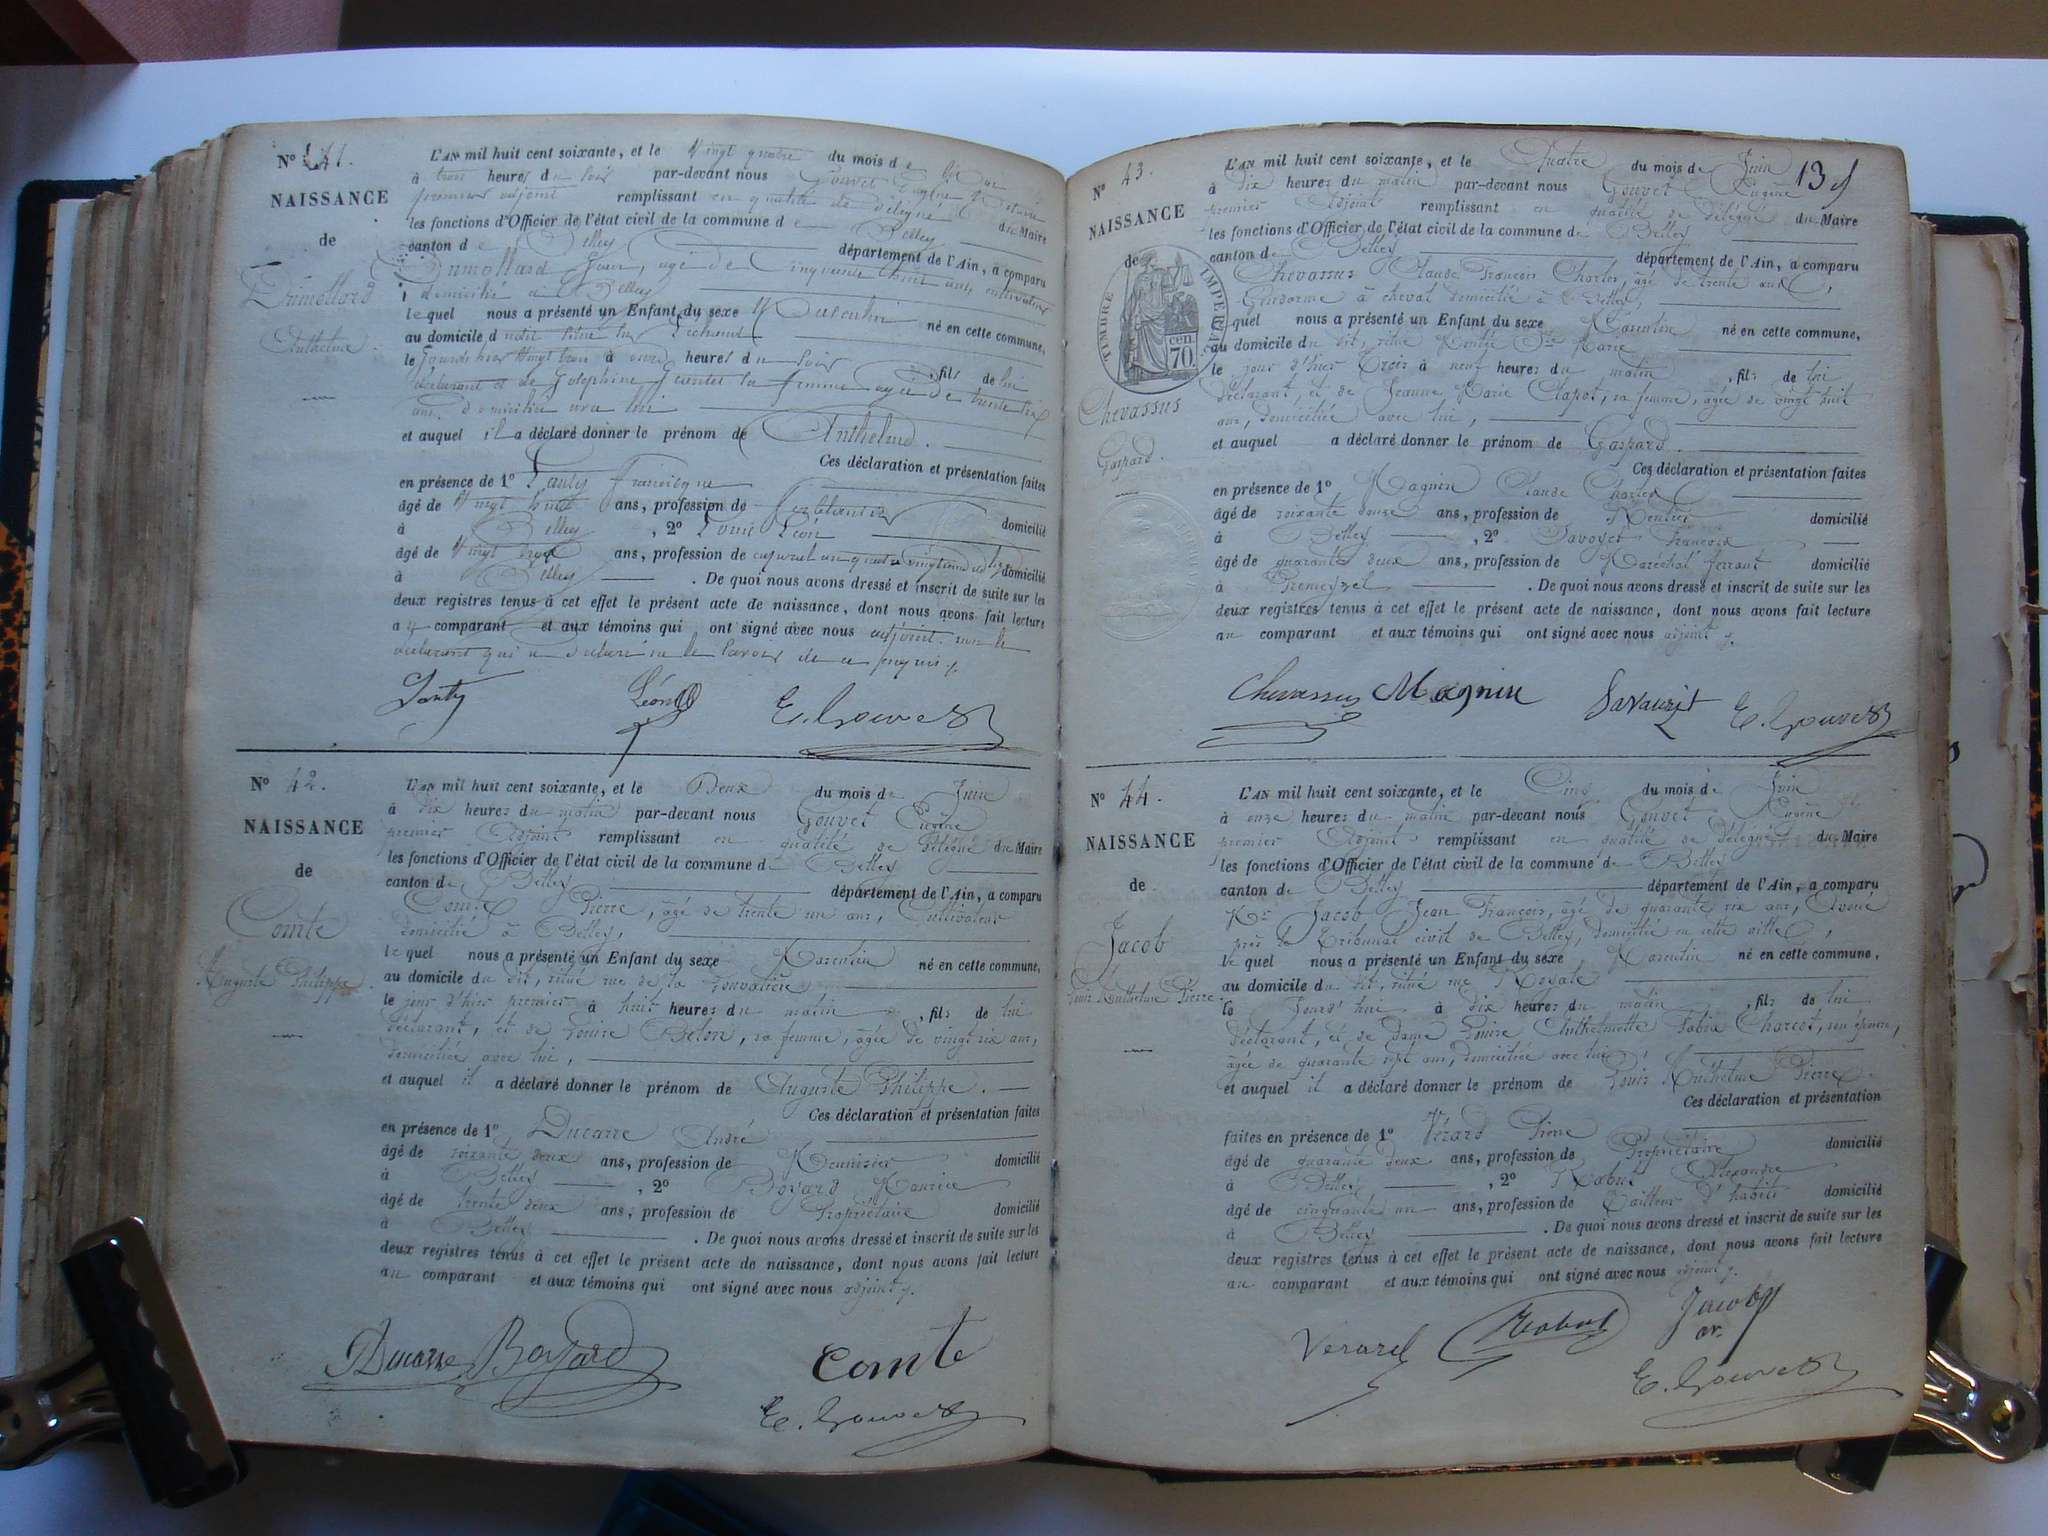 N° 41.
NAISSANCE
de
Dumollard
Anthelme.
L'AN mil huit cent soixante, et le Vingt quatre du mois de
à trois heures du soir par-devant nous Gouvet Eugène
premier adjoint remplissant en qualité de délégué du Maire
les fonctions d'Officier de l'état civil de la commune de Belley
canton de Belley département de l'Ain, a comparu
Dumollard âgé de Cinquante ans cultivateur
domicilié à Belley
lequel nous a présenté un Enfant du sexe Masculin né en cette commune,
au domicile d
le jour d'hier Vingt trois à onze heures du soir, fils de lui
déclarant et de Joséphine sa femme agée de trente six
ans domiciliée avec lui
et auquel il a déclaré donner le prénom de Anthelme.
Ces déclaration et présentation faites
en présence de 1°
âgé de Vingt huit ans, profession de ferblantier domicilié
à Belley, 2° Louis Léon
âgé de Vingt ans, profession de domicilié
à Belley. De quoi nous avons dressé et inscrit de suite sur les
deux registres tenus à cet effet le présent acte de naissance, dont nous avons fait lecture
au comparant et aux témoins qui ont signé avec nous adjoint non le
déclarant qui a déclaré ne le savoir de ce requis.
Léon E. Gouvet
N° 42.
NAISSANCE
de
Comte
Auguste Philippe.
L'AN mil huit cent soixante, et le Deux du mois de Juin
à dix heures du matin par-devant nous Gouvet Eugène
premier Adjoint remplissant en qualité de Délégué du Maire
les fonctions d'Officier de l'état civil de la commune de Belley
canton de Belley département de l'Ain, a comparu
Comte Pierre, âgé de trente un ans, Cultivateur
domicilié à Belley,
lequel nous a présenté un Enfant du sexe Masculin né en cette commune,
au domicile du dit, situé rue de la
le jour d'hier premier à huit heures du matin, fils de lui
déclarant, et de Louise Béton, sa femme, âgée de vingt six ans,
domiciliée avec lui,
et auquel il a déclaré donner le prénom de Auguste Philippe.
Ces déclaration et présentation faites
en présence de 1° Ducarre André
âgé de soixante deux ans, profession de Menuisier domicilié
à Belley, 2° Boyard Maurice
âgé de trente deux ans, profession de Propriétaire domicilié
à Belley. De quoi nous avons dressé et inscrit de suite sur les
deux registres tenus à cet effet le présent acte de naissance, dont nous avons fait lecture
au comparant et aux témoins qui ont signé avec nous adjoint.
Ducarre Boyard Comte
E. Gouvet
13
N° 43.
NAISSANCE
de
TIMBRE IMPERIAL
70 cen
Chevassus
Gaspard.
L'AN mil huit cent soixante, et le Quatre du mois de Juin
à dix heures du matin par-devant nous Gouvet Eugène
premier Adjoint remplissant en qualité de Délégué du Maire
les fonctions d'Officier de l'état civil de la commune de Belley
canton de Belley département de l'Ain, a comparu
Chevassus Claude François Charles, âgé de trente ans,
Gendarme à cheval domicilié à Belley,
lequel nous a présenté un Enfant du sexe Masculin né en cette commune,
au domicile du dit, situé Montée Ste Marie
le jour d'hier Trois à neuf heures du matin, fils de lui
déclarant, et de Jeanne Marie Clapot, sa femme, âgée de vingt huit
ans, domiciliée avec lui,
et auquel a déclaré donner le prénom de Gaspard.
Ces déclaration et présentation faites
en présence de 1° Magnin Claude Charles
âgé de soixante douze ans, profession de Rentier domicilié
à Belley, 2° Savoyet François
âgé de quarante deux ans, profession de Maréchal ferrant domicilié
à Premeyzel. De quoi nous avons dressé et inscrit de suite sur les
deux registres tenus à cet effet le présent acte de naissance, dont nous avons fait lecture
au comparant et aux témoins qui ont signé avec nous adjoint.
Chevassus Magnin E. Gouvet
N° 44.
NAISSANCE
de
Jacob
Louis Anthelme Pierre.
L'AN mil huit cent soixante, et le Cinq du mois de Juin
à onze heures du matin par-devant nous Gouvet Eugène
premier Adjoint remplissant en qualité de Délégué du Maire
les fonctions d'Officier de l'état civil de la commune de Belley
canton de Belley département de l'Ain, a comparu
Mr Jacob Jean François, âgé de quarante six ans, Avoué
près le Tribunal civil de Belley, domicilié en cette ville,
lequel nous a présenté un Enfant du sexe Masculin né en cette commune,
au domicile du dit, situé rue Royale
le Jourd'hui à dix heures du matin, fils de lui
déclarant, et de dame Louise Anthelmette Fabix Charcot, son épouse,
âgée de quarante sept ans, domiciliée avec lui
et auquel il a déclaré donner le prénom de Louis Anthelme Pierre.
Ces déclaration et présentation
faites en présence de 1° Vérard Pierre
âgé de quarante deux ans, profession de Propriétaire domicilié
à Belley, 2° Rabut Alexandre
âgé de cinquante un ans, profession de Tailleur d'habits domicilié
à Belley. De quoi nous avons dressé et inscrit de suite sur les
deux registres tenus à cet effet le présent acte de naissance, dont nous avons fait lecture
au comparant et aux témoins qui ont signé avec nous adjoint.
Vérard Rabut Jacob
av.
E. Gouvet